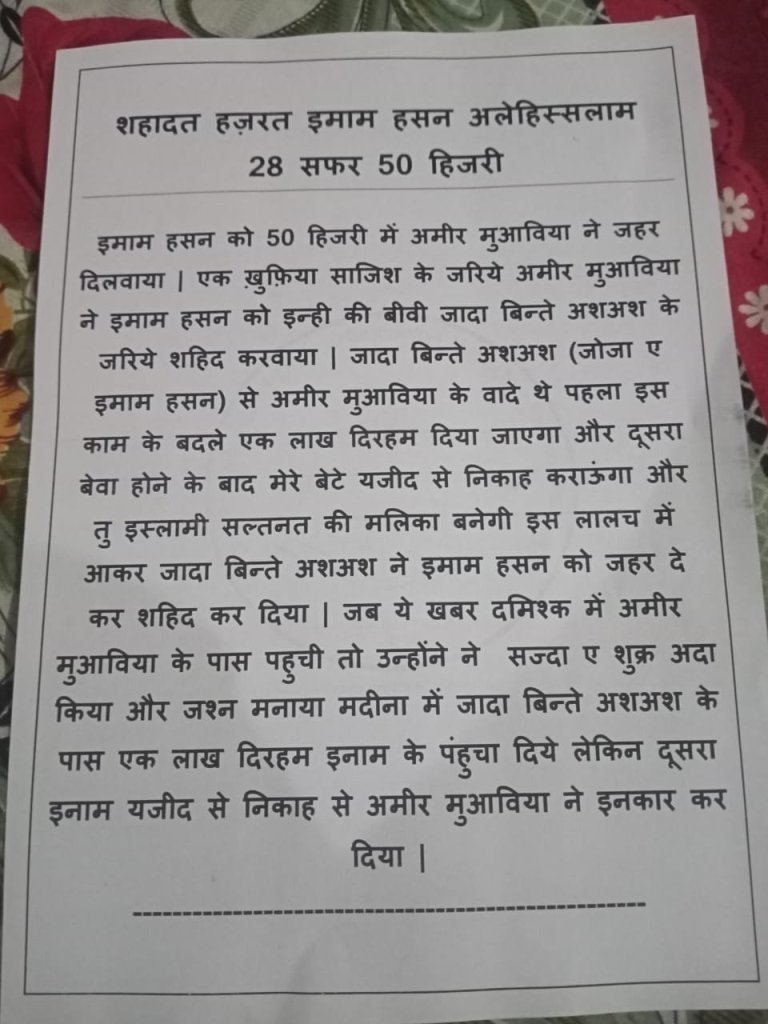 शहादत हज़रत इमाम हसन अलेहिस्सलाम
28 सफर 50 हिजरी
इमाम हसन को 50 हिजरी में अमीर मुआविया ने जहर
दिलवाया | एक ख़ुफ़िया साजिश के जरिये अमीर मुआविया
ने इमाम हसन को इन्ही की बीवी जादा बिन्ते अशअश के
जरिये शहिद करवाया | जादा बिन्ते अशअश (जोजा ए
इमाम हसन) से अमीर मुआविया के वादे थे पहला इस
काम के बदले एक लाख दिरहम दिया जाएगा और दूसरा
बेवा होने के बाद मेरे बेटे यजीद से निकाह कराऊंगा और
तु इस्लामी सल्तनत की मलिका बनेगी इस लालच में
आकर जादा बिन्ते अशअश ने इमाम हसन को जहर दे
कर शहिद कर दिया | जब ये खबर दमिश्क में अमीर
मुआविया के पास पहुची तो उन्होंने ने सज्दा ए शुक्र अदा
किया और जश्न मनाया मदीना में जादा बिन्ते अशअश के
पास एक लाख दिरहम इनाम के पंहुचा दिये लेकिन दूसरा
इनाम यजीद से निकाह से अमीर मुआविया ने इनकार कर
दिया |